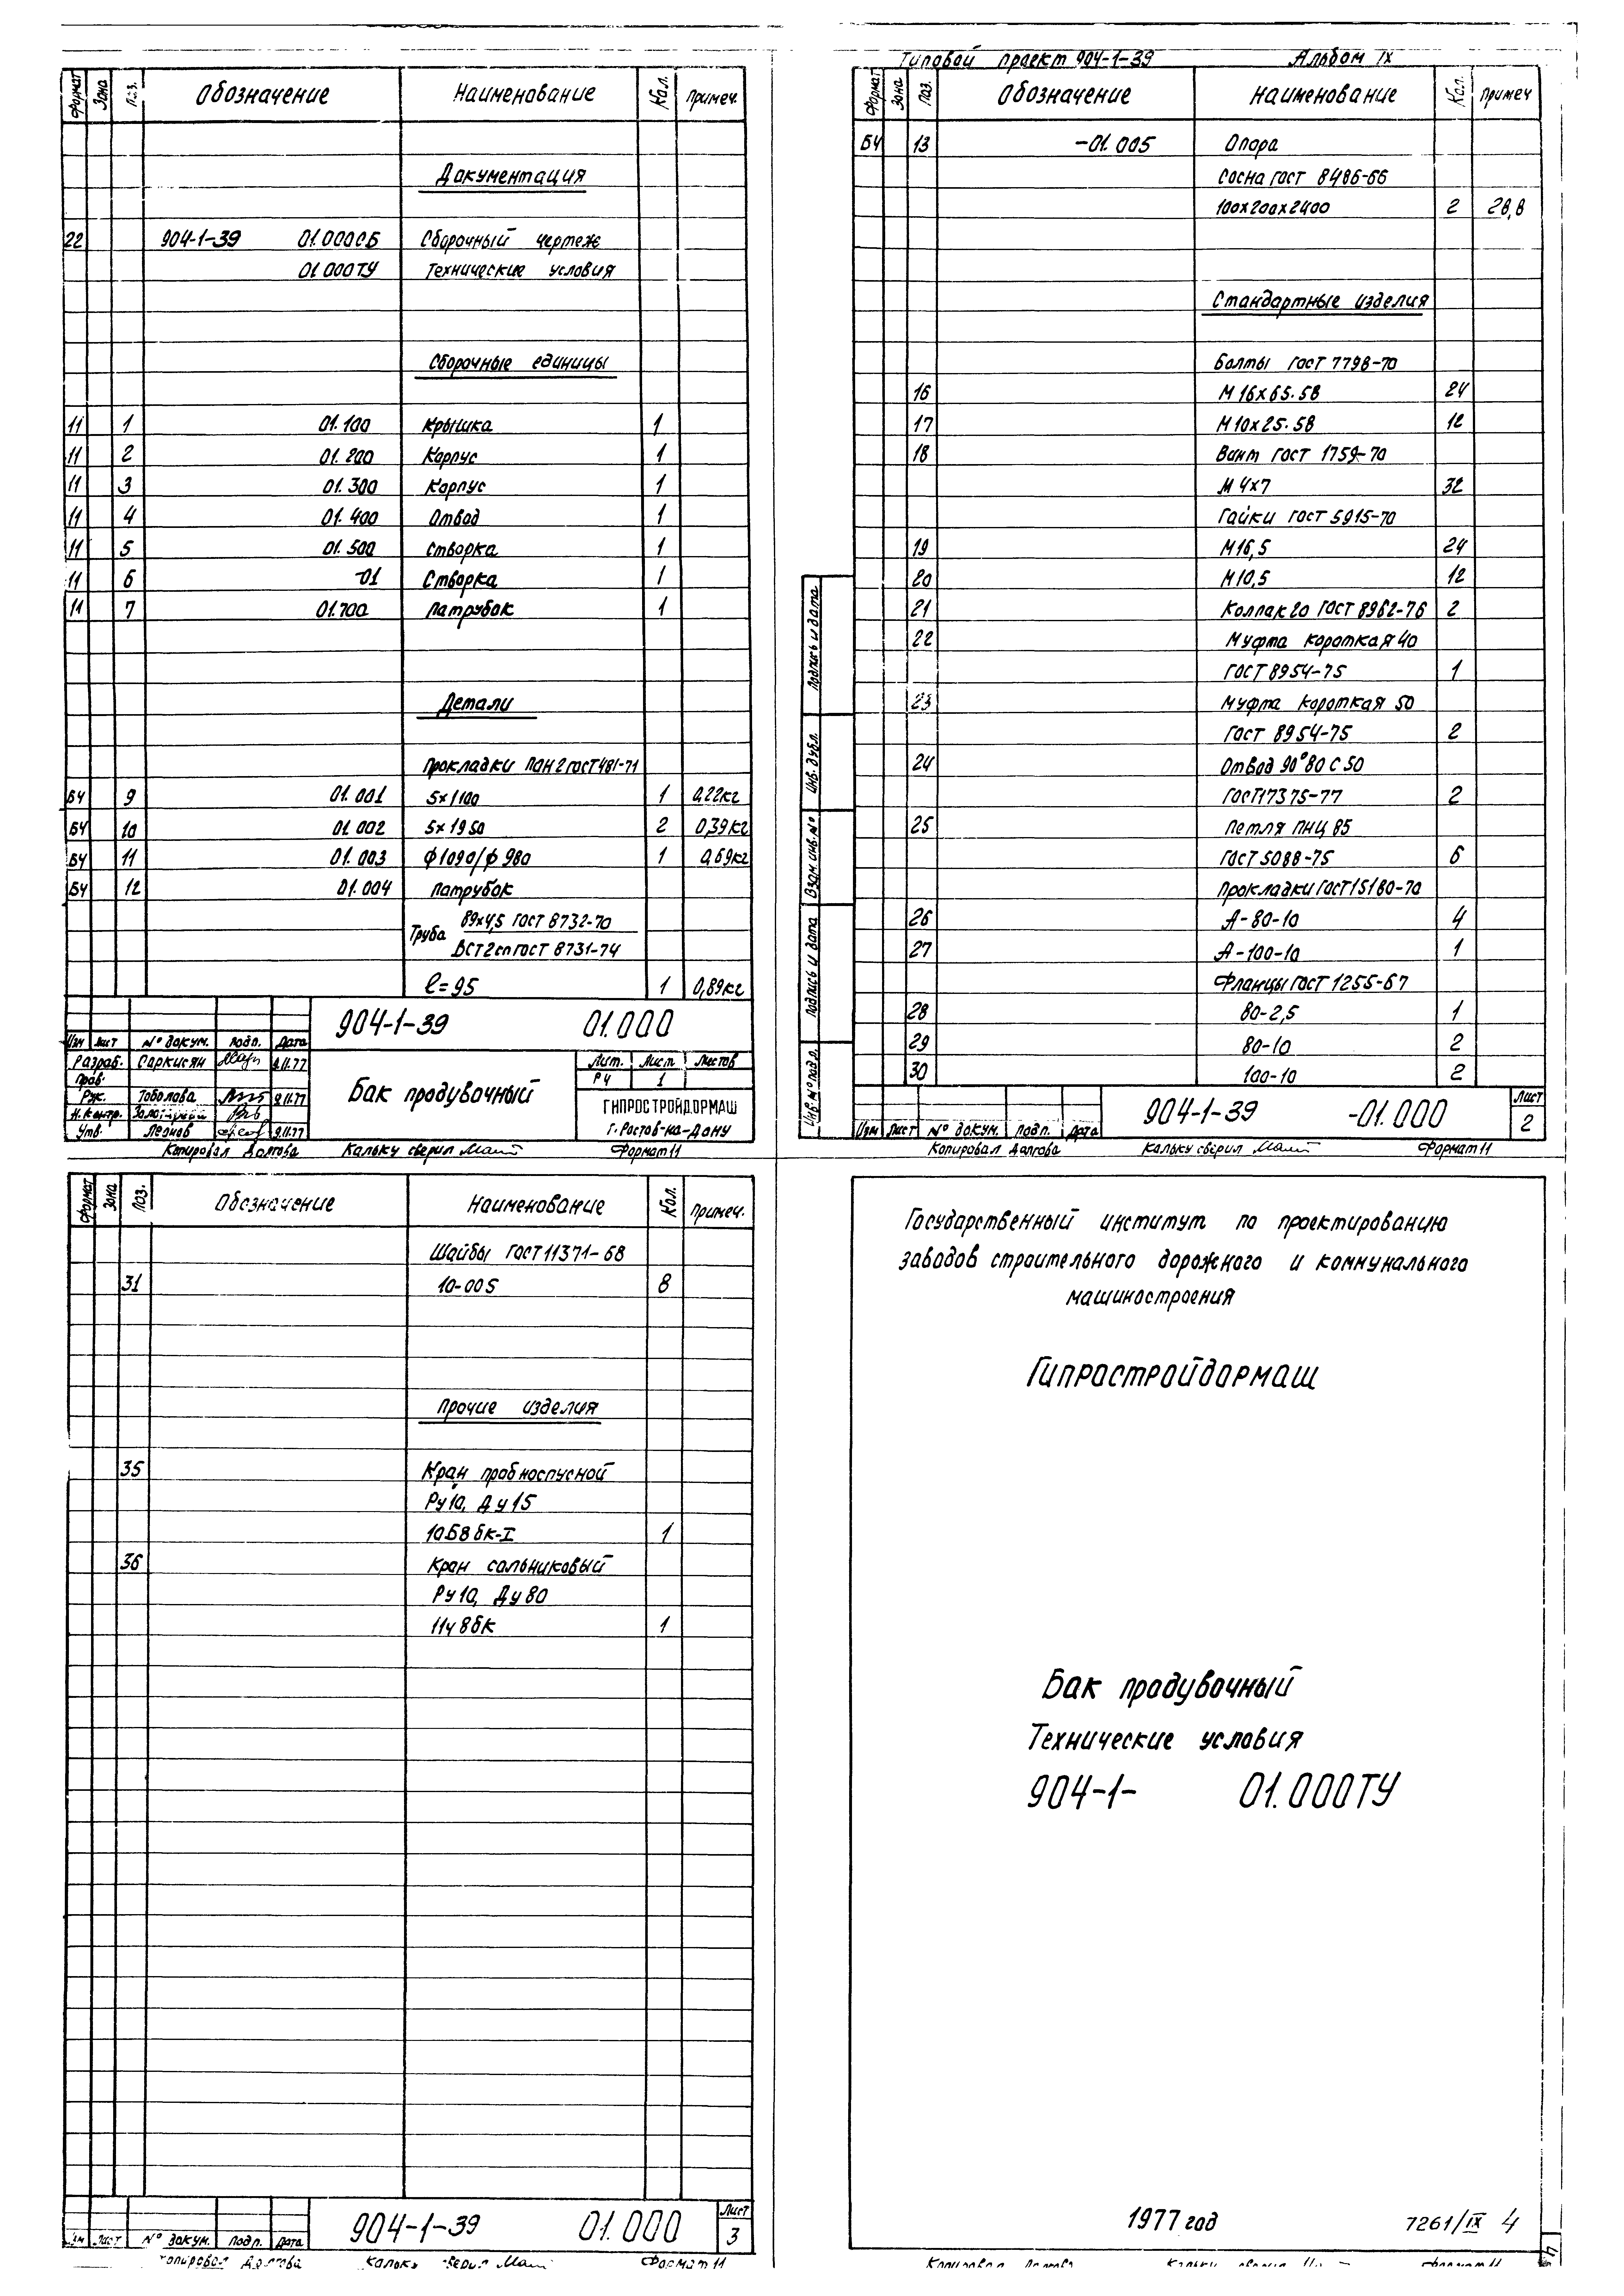 Типовой проект 904-1-39 Альбом IX
Формат Зона Поз. Обозначение Наименование Кол. Примеч.
Документация
22 904-1-39 01.000СБ Сборочный чертеж
01.000ТУ Технические условия
Сборочные единицы
11 1 01.100 Крышка 1
11 2 01.200 Корпус 1
11 3 01.300 Корпус 1
11 4 01.400 Отвод 1
11 5 01.500 Створка 1
11 6 -01 Створка 1
11 7 01.700 Патрубок 1
Детали
Прокладки ПОН 2 ГОСТ 481-71
БЧ 9 01.001 5х1100 1 0,22кг
БЧ 10 01.002 5х1950 2 0,39кг
БЧ 11 01.003 ф1090/ф980 1 0,69кг
БЧ 12 01.004 Патрубок
Труба 89х4,5 ГОСТ 8732-70
ВСТ2сп ГОСТ 8731-74
l=95 1 0,89кг
904-1-39 01.000
Изм Лист № докум. Подп. Дата
Разраб. Саркисян 9.11.77
Пров.
Рук. Тоболова 9.11.77
Н.контр.
Утв. Леонов 9.11.77
Бак продувочный
Лит. Лист Листов
РЧ 1
ГИПРОСТРОЙДОРМАШ
г.Ростов-на-Дону
Копировал Долгова Кальку сверил Формат 11
Формат Зона Поз. Обозначение Наименование Кол. Примеч
БЧ 13 -01.005 Опора
Сосна ГОСТ 8486-66
100х200х2400 2 28,8
Стандартные изделия
Болты ГОСТ 7798-70
16 М16х65.58 24
17 М10х25.58 12
18 Винт ГОСТ 1759-70
М4х7 32
Гайки ГОСТ 5915-70
19 М16,5 24
20 М10,5 12
21 Колпак 20 ГОСТ 8962-76 2
22 Муфта короткая 40
ГОСТ 8954-75 1
23 Муфта короткая 50
ГОСТ 8954-75 2
24 Отвод 90°80 С 50
ГОСТ 17375-77 2
25 Петля ПНЦ 85
ГОСТ 5088-75 6
Прокладки ГОСТ 15180-70
26 А-80-10 4
27 А-100-10 1
Фланцы ГОСТ 1255-67
28 80-2,5 1
29 80-10 2
30 100-10 2
Подпись и дата
Инв. дубл.
Взам. инв. №
Подпись и дата
Инв. № подл.
Изм Лист № докум. Подп. Дата
904-1-39 -01.000 Лист 2
Копировал Долгова Кальку сверил Формат 11
Формат Зона Поз. Обозначение Наименование Кол. Примеч.
Шайбы ГОСТ 11371-68
31 10-005 8
Прочие изделия
35 Кран пробноспусной
Ру10, Ду15
10Б8бк-I 1
36 Кран сальниковый
Ру10, Ду80
11ч8бк 1
Изм Лист № докум. Подп. Дата
904-1-39 01.000 Лист 3
Копировал Долгова Кальку сверил Формат 11
Государственный институт по проектированию
заводов строительного дорожного и коммунального
машиностроения
Гипростройдормаш
Бак продувочный
Технические условия
904-1- 01.000ТУ
1977 год
7261/IX 4